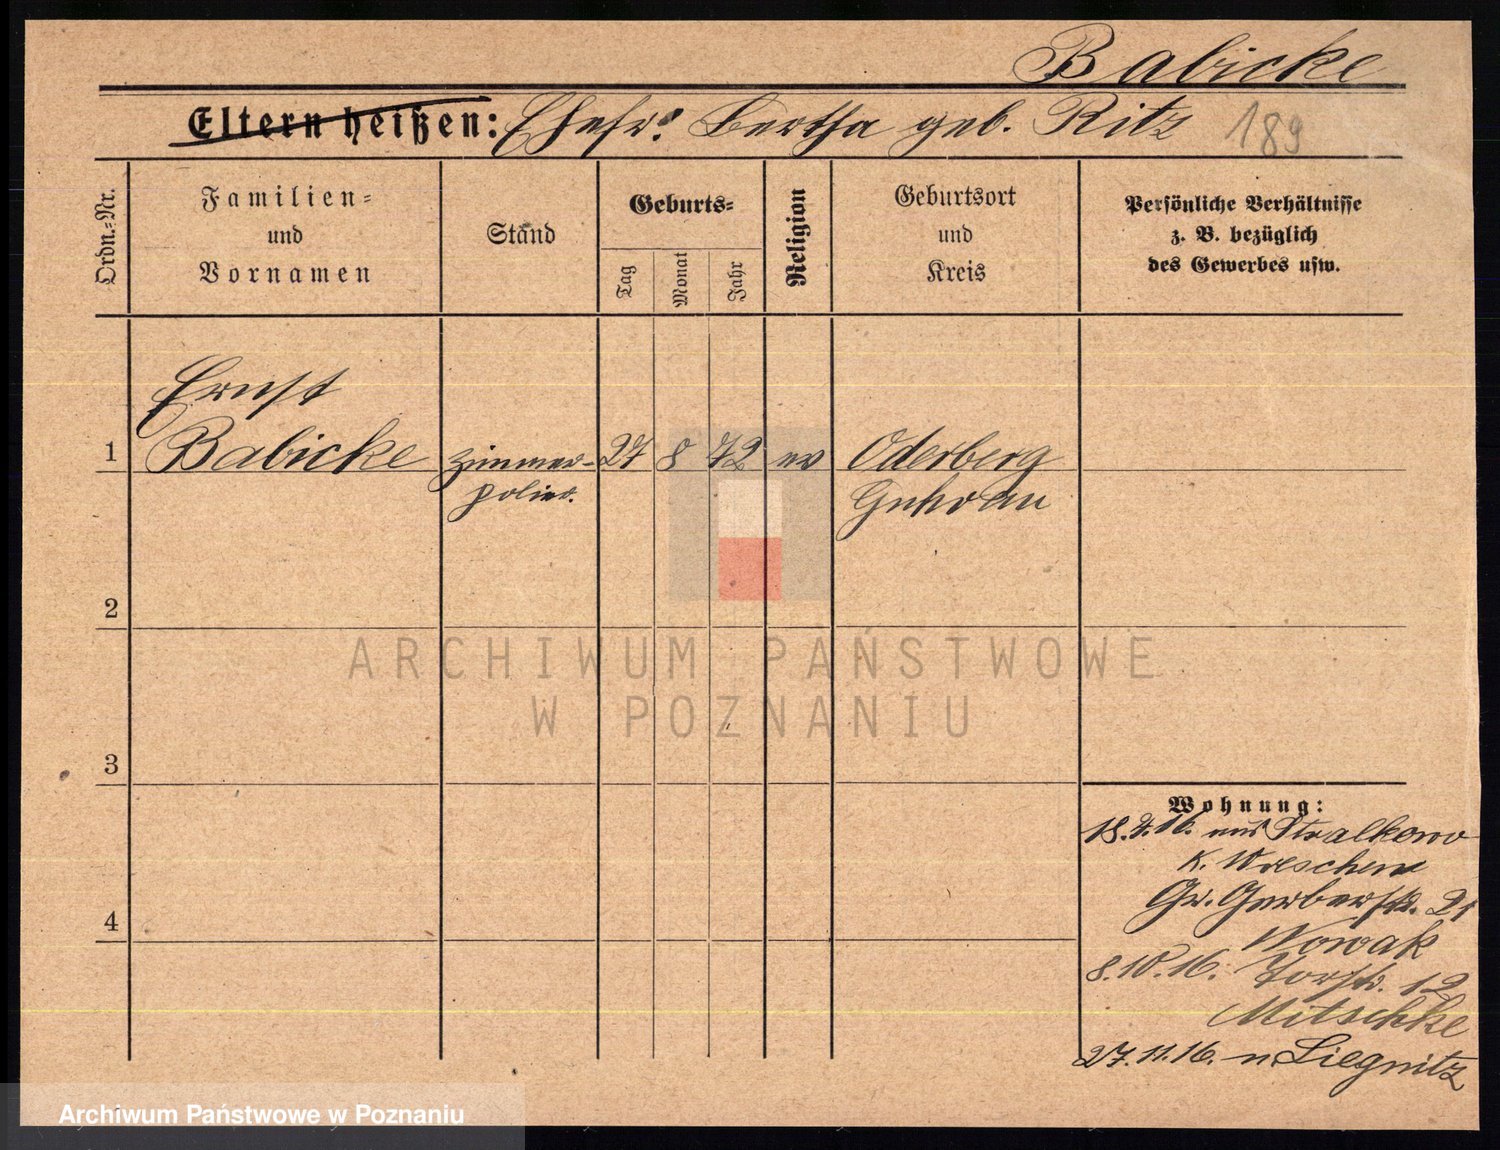 Babicke
Eltern heißen: Ehefr: Bertha geb. Ritz 189
Ordn.-Nr.
Familien-
und
Vornamen
Stand
Geburts-
Tag
Monat
Jahr
Religion
Geburtsort
und
Kreis
Persönliche Verhältnisse
z. B. bezüglich
des Gewerbes usw.
Ernst
1 Babicke Zimmer- 27 8 72 ev Oderberg
polier. Guhrau
2
3
4
Wohnung:
18.7.16. aus Stralkowo
K. Wreschen
Gr. Gerberstr. 21
Nowak
8.10.16. Torstr. 12
Mitschke
27.11.16. n. Liegnitz
ARCHIWUM PAŃSTWOWE
W POZNANIU
Archiwum Państwowe w Poznaniu